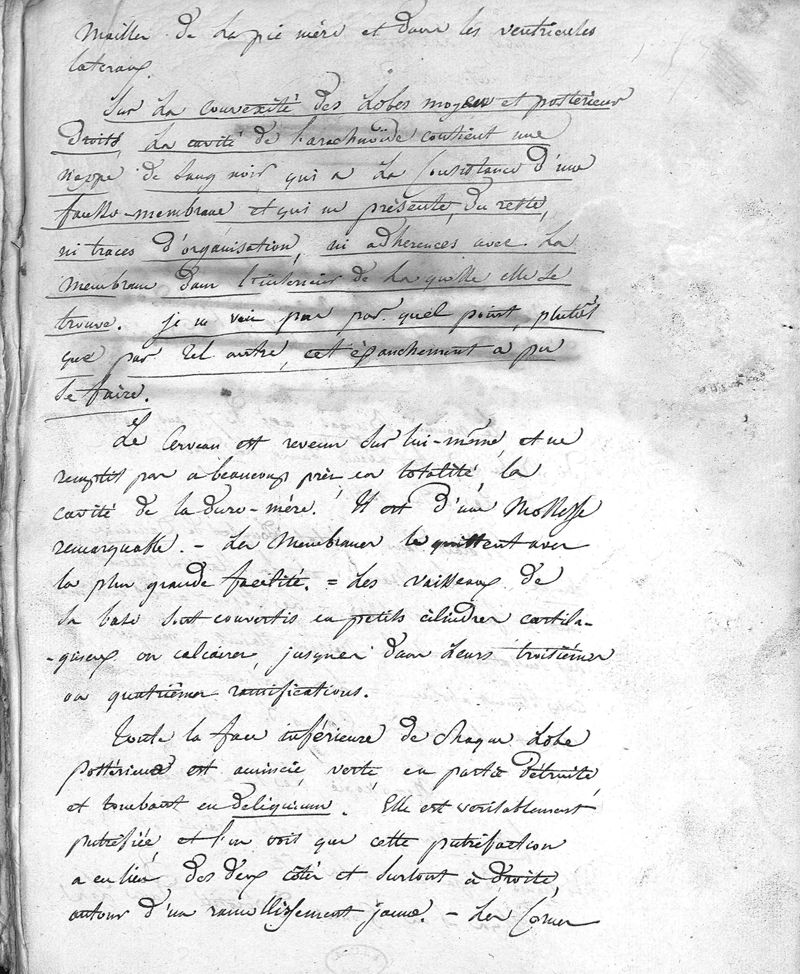 mailles de la pie mère et dans les ventricules
lateraux.
Sur la convexité des Lobes moyen et postérieur
droits, la cavité de l'arachnoïde contient une
nappe de sang noir, qui a la Consistance d'une
fausse-membrane et qui ne présente, du reste,
ni traces d'organisation, ni adhérences avec la
membrane dans l'intérieur de laquelle elle se
trouve. je ne vois pas par quel point, plutôt
que par tel autre, cet épanchement a pu
se faire.
Le Cerveau est revenu sur lui-même, et ne
remplit pas a beaucoup près en totalité, la
cavité de la dure-mère. Il est d'une Mollesse
remarquable. - Les Membranes le quittent avec
la plus grande facilité. = Les vaisseaux de
sa base sont convertis en petits cilindres cartila-
-gineux ou calcaires, jusques dans leurs troisièmes
ou quatrièmes ramifications.
Toute la face inférieure de chaque Lobe
postérieur est amincie, verte en partie détruite,
et tombant en deliquium. Elle est veritablement
putréfiée, et l'on voit que cette putréfaction
a eu lieu des deux côtés et surtout à droite,
autour d'un ramollissement jaune. - Les Cornes